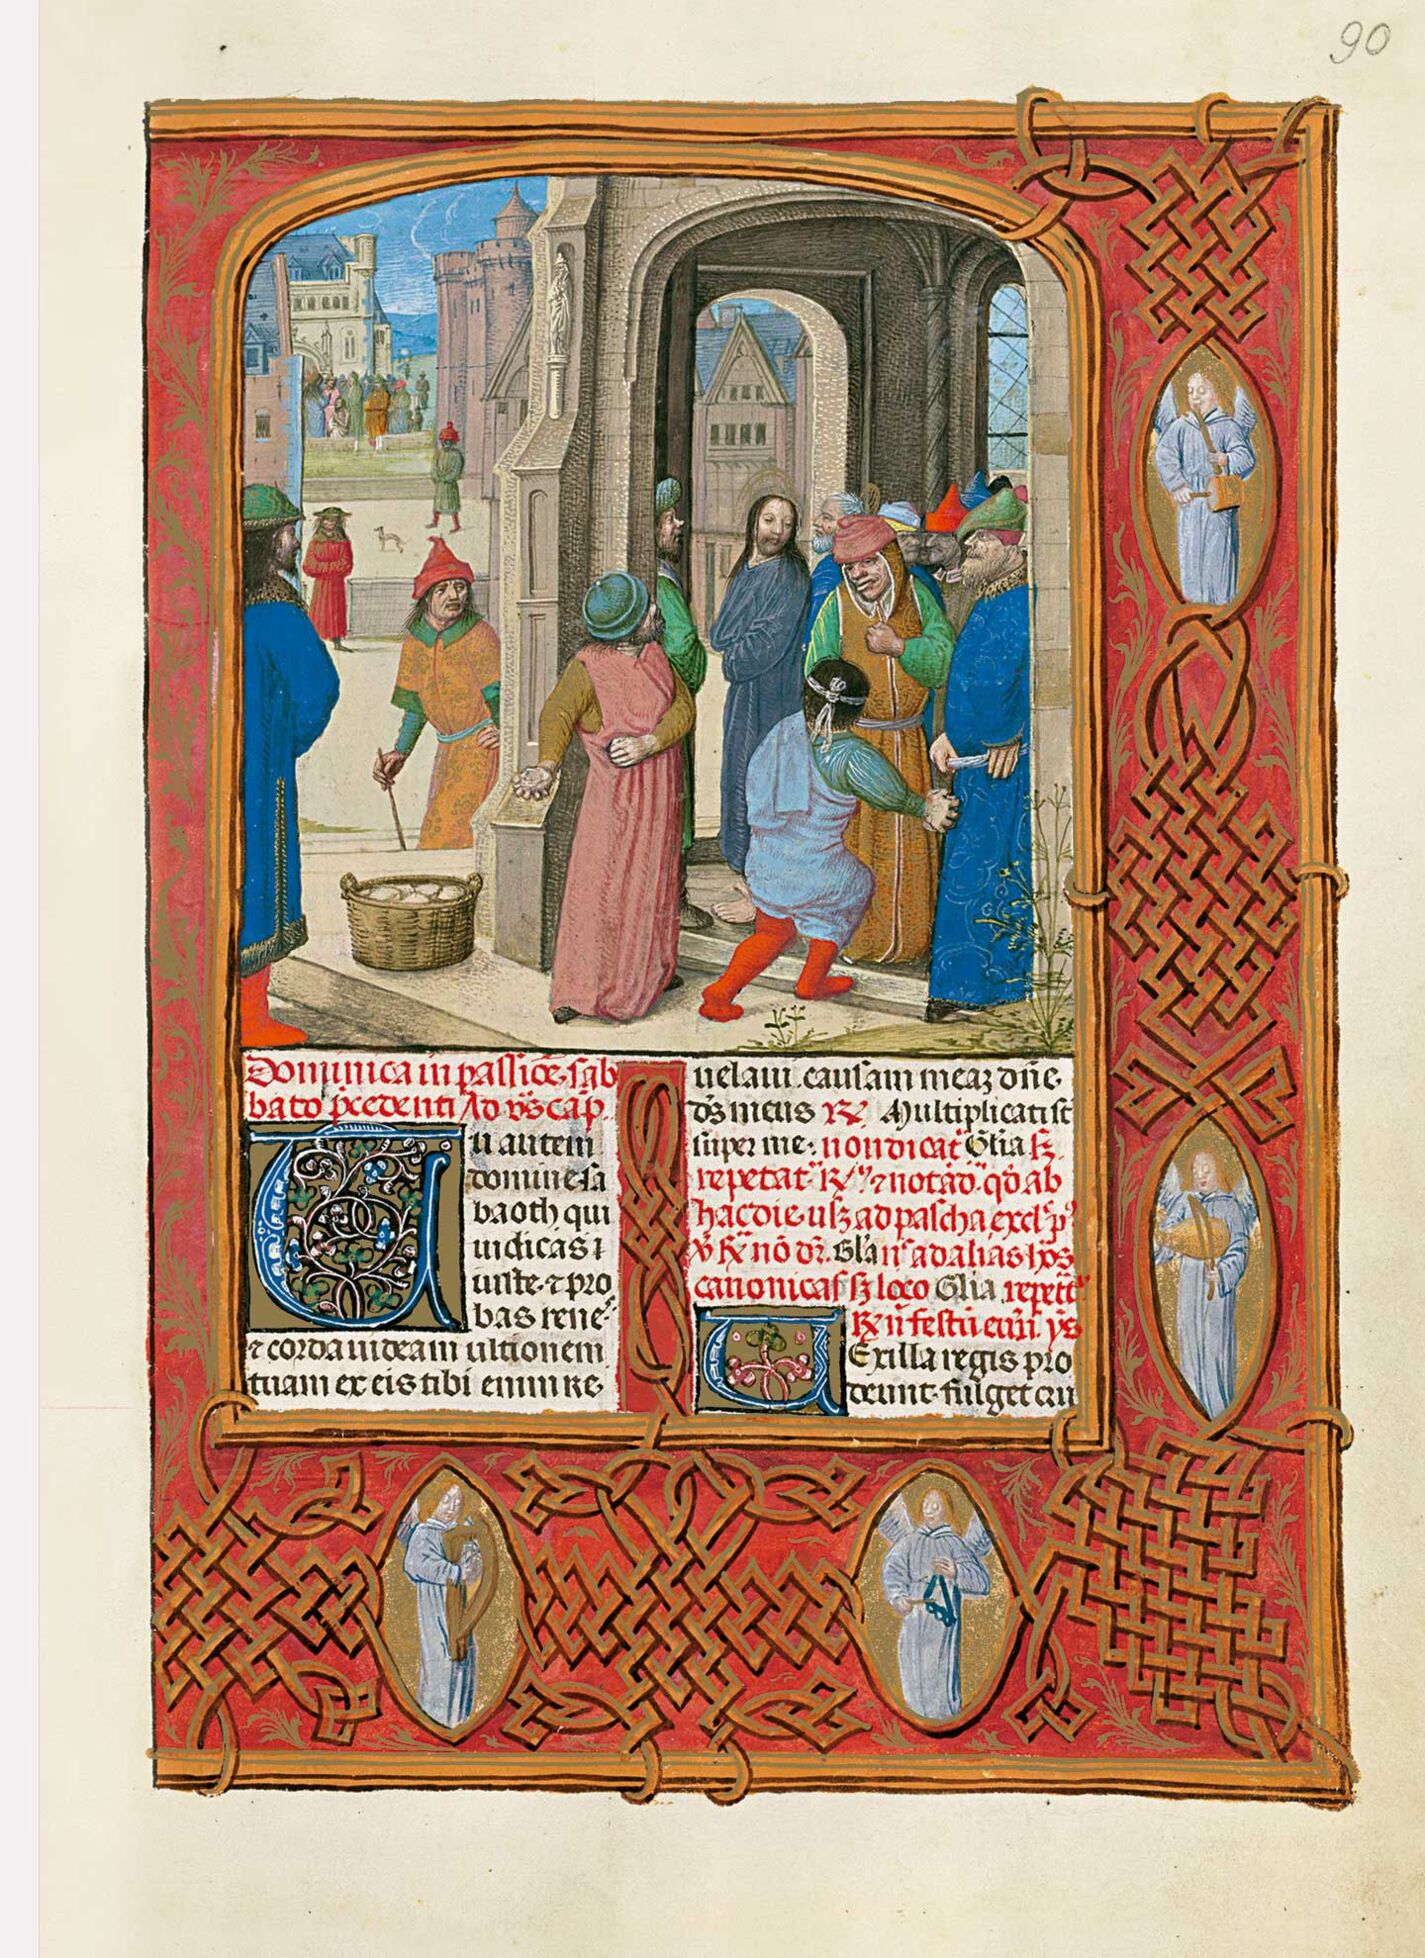 90
Dominica in passiōe. sab
bato p̄cedenti Ad vs̄ cap̄.
Tu autem
domine sa
baoth qui
iudicas i
uste. ⁊ pro
bas renes
⁊ corda uideam ultionem
tuam ex eis tibi enim re
uelaui causam meaꝫ dn̄e
ds̄ meus R̷ Multiplicati st̄
super me. non dicat̄ Gl̄ia sꝫ
repetat̄ R̷ ⁊ notād̄ qd̄ ab
hac die usqꝫ ad pascha excl̄
nō dr̄. Gl̄a n̄ ad alias
canonicas sꝫ loco Gl̄ia repetit̄
R̷ n̄ festū euēn̄. ys̄
Vexilla regis pro
deunt. fulget cru